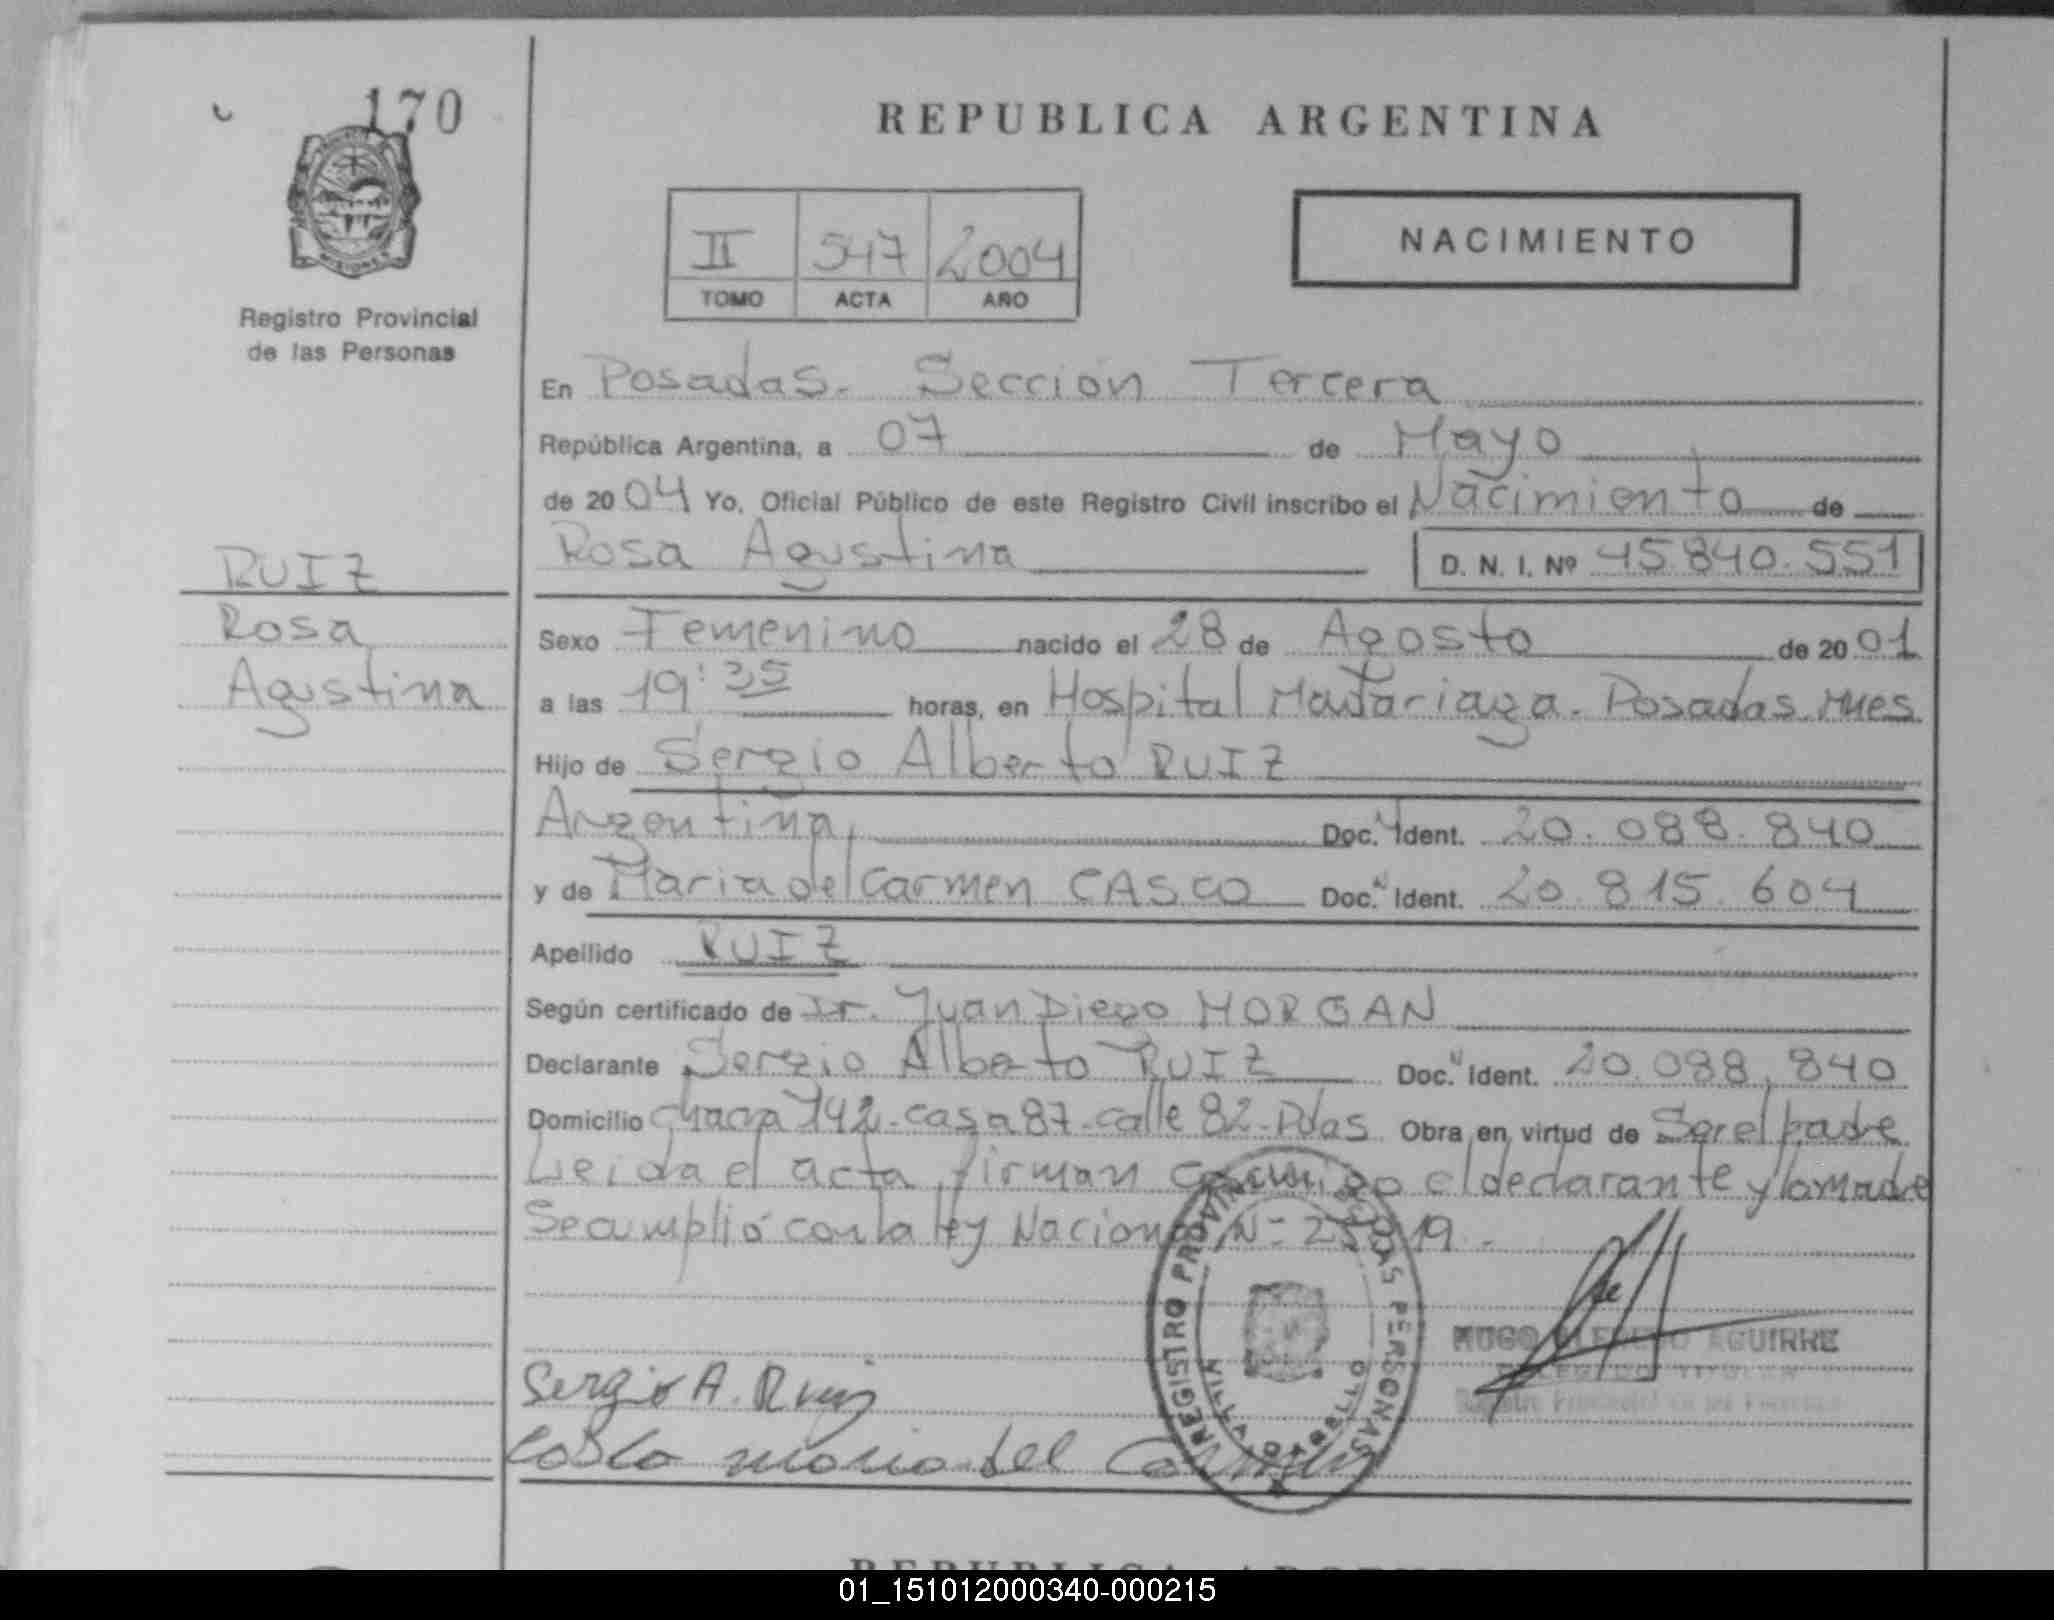 170
REPUBLICA ARGENTINA
MISIONES
II 547 2004
TOMO ACTA AÑO
NACIMIENTO
Registro Provincial
de las Personas
En Posadas. Sección Tercera
República Argentina, a 07 de Mayo
de 2004 Yo, Oficial Público de este Registro Civil inscribo el Nacimiento de
Rosa Agustina D. N. I. Nº 45.840.551
RUIZ
Rosa
Agustina
Sexo Femenino nacido el 28 de Agosto de 2001
a las 19:35 horas, en Hospital Madariaga. Posadas Mnes
Hijo de Sergio Alberto RUIZ
Argentina, Doc. Ident. 20.088.840
y de Maria del Carmen CASCO Doc. Ident. 20.815.604
Apellido RUIZ
Según certificado de Dr. Juan Diego MORGAN
Declarante Sergio Alberto RUIZ Doc. Ident. 20.088.840
Domicilio chacra 142-casa 87-calle 82-Pdas Obra en virtud de Ser el padre
Leida el acta firman conmigo el declarante y la madre
Se cumplió con la ley Nacional Nº 25819.
REGISTRO PROVINCIAL DE LAS PERSONAS
VILLA CABELLO
HUGO ALFREDO AGUIRRE
DELEGADO TITULAR
Registro Provincial de las Personas
Sergio A. Ruiz
Casco maria del Carmen
REPUBLICA ARGENTINA
01_151012000340-000215